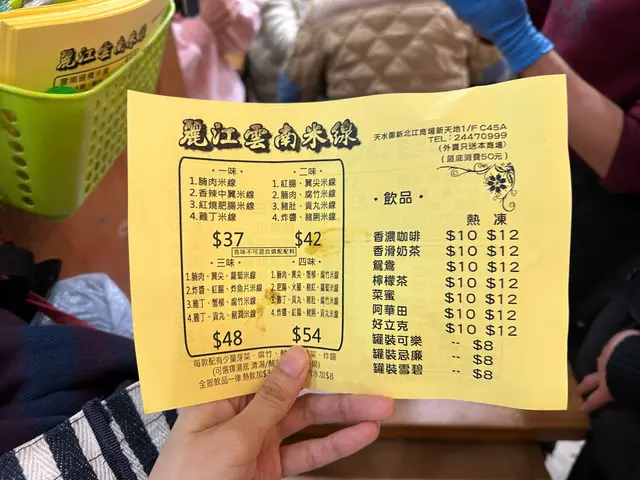 麗江雲南米線
麗江雲南米線
天水圍新北江商場新天地1/F C45A
TEL：24470999
(外賣只送本商場)
(最底消費50元)
·一味·
1.腩肉米線
2.香辣中翼米線
3.紅燒肥腸米線
4.雞丁米線
$37
·二味·
1.紅腸、翼尖米線
2.腩肉、腐竹米線
3.豬肚、貢丸米線
4.炸醬、豬脷米線
$42
各味不可混合選配配料
·三味·
1.腩肉、翼尖、蘿蔔米線
2.炸醬、紅腸、炸魚片米線
3.雞丁、蟹柳、腐竹米線
4.雞丁、貢丸、豬潤米線
$48
·四味·
1.腩肉、翼尖、蟹柳、腐竹米線
$54
·飲品·
熱 凍
香濃咖啡 $10 $12
香滑奶茶 $10 $12
鴛鴦 $10 $12
檸檬茶 $10 $12
菜蜜 $10 $12
阿華田 $10 $12
好立克 $10 $12
罐裝可樂 -- $8
罐裝忌廉 -- $8
罐裝雪碧 -- $8
每款配有少量芽菜、腐竹、 菜、炸醬
(可選擇湯底 清湯/酸
全部飲品一律 熱飲加$3 水加$8